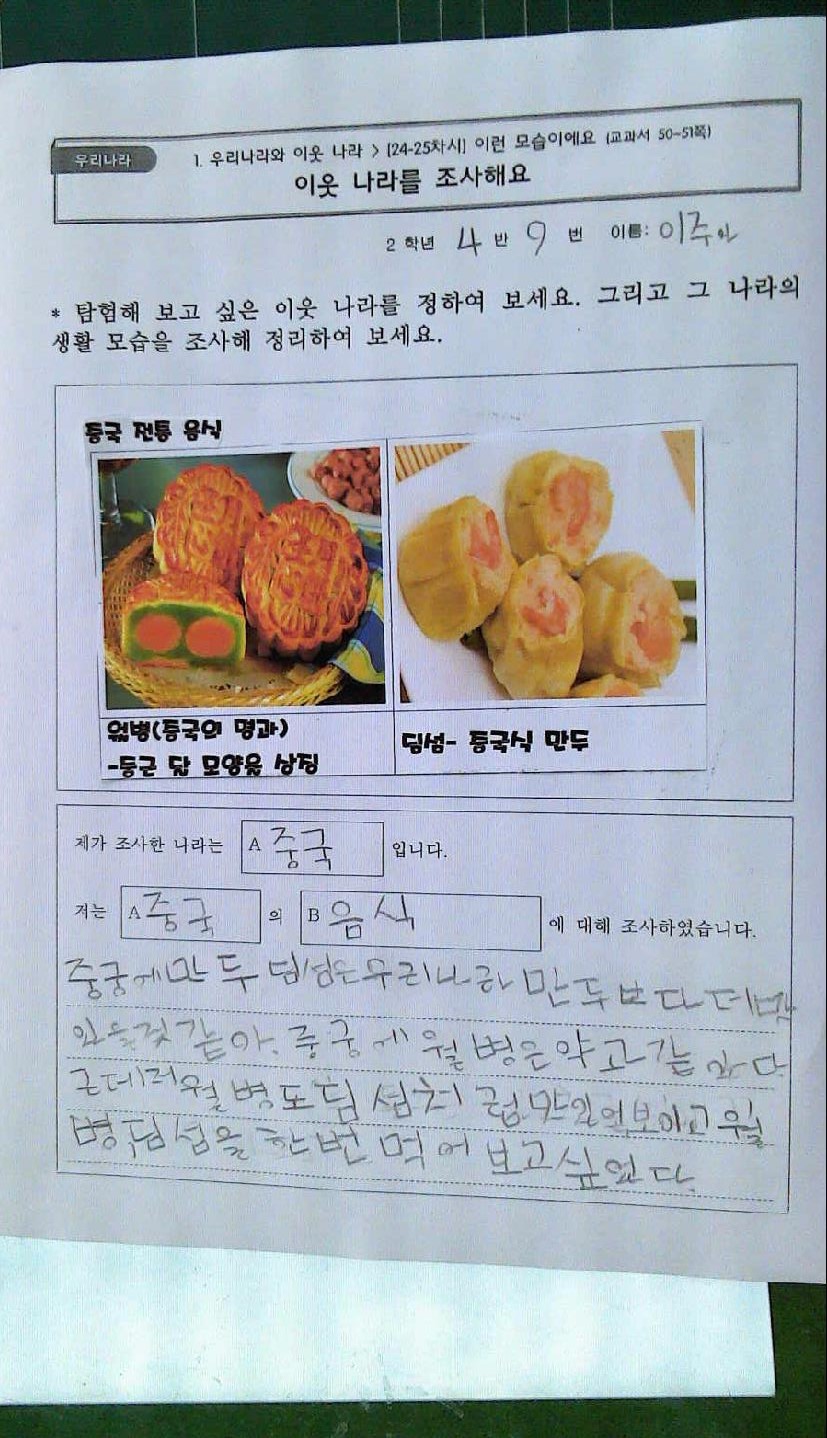 우리나라
1. 우리나라와 이웃 나라 > [24-25차시] 이런 모습이에요 (교과서 50~51쪽)
이웃 나라를 조사해요
2 학년 4 반 9 번 이름: 이주안
* 탐험해 보고 싶은 이웃 나라를 정하여 보세요. 그리고 그 나라의
생활 모습을 조사해 정리하여 보세요.
중국 전통 음식
월병(중국의 명과)
-둥근 달 모양을 상징
딤섬- 중국식 만두
제가 조사한 나라는 A 중국 입니다.
저는 A 중국 의 B 음식 에 대해 조사하였습니다.
중궁에만두 딤섬은우리나라 만두보다 데맛
있을것 같아. 중궁에 월병은 약고가 같아다
근데 월병도딤섬처럼 보이고 월
병,딤섬을 한번 먹어 보고싶었다.